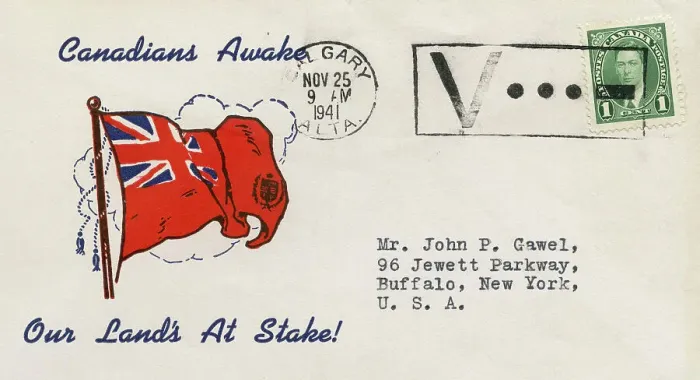 Canadians Awake
CALGARY
NOV 25
9 AM
1941
ALTA.
V
POSTES CANADA POSTAGE
1 CENT 1
Mr. John P. Gawel,
96 Jewett Parkway,
Buffalo, New York,
U. S. A.
Our Land's At Stake!